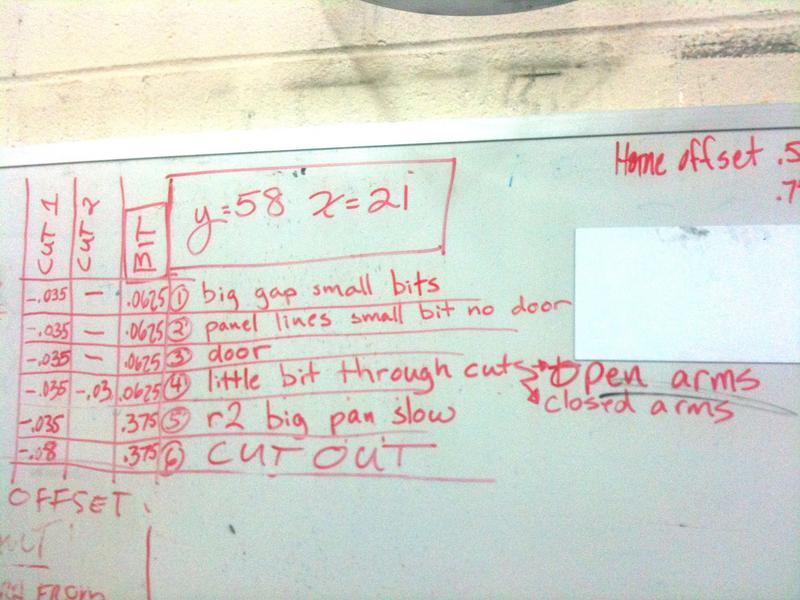 Home offset .5
.7
CUT 1 CUT 2 BIT y=58 x=21
-.035 — .0625 ① big gap small bits
-.035 — .0625 ② panel lines small bit no door
-.035 — .0625 ③ door
-.035 -.03 .0625 ④ little bit through cuts → open arms
closed arms
-.035 .375 ⑤ r2 big pan slow
-.08 .375 ⑥ CUT OUT
OFFSET
FROM